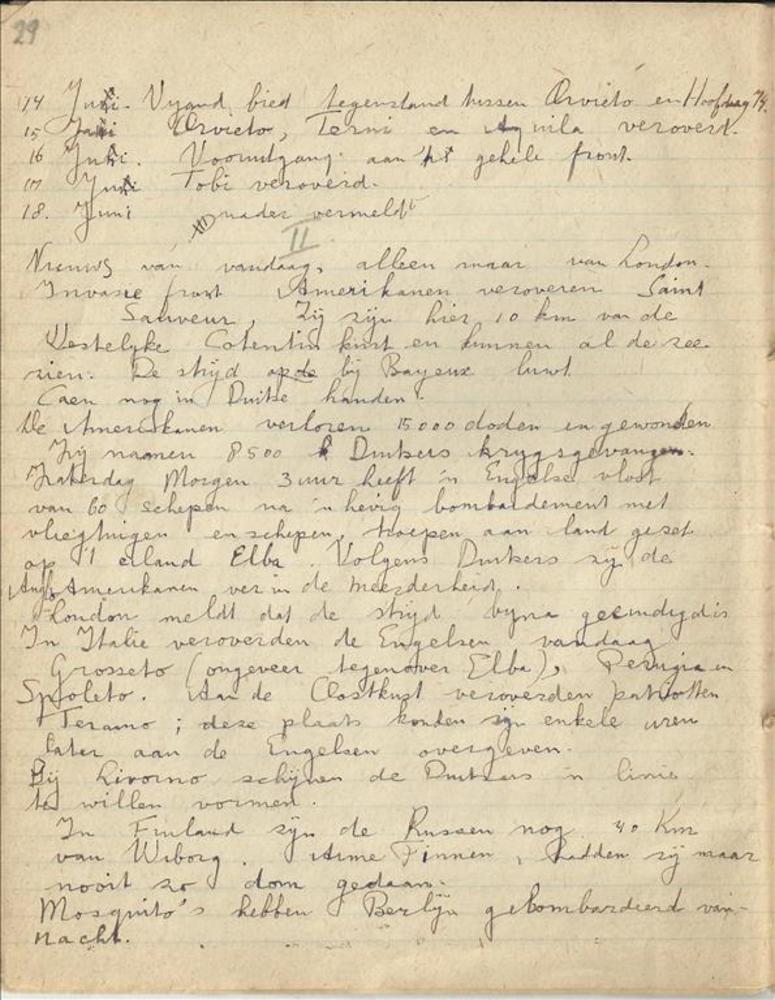 29
14 Juni. Vyand bied tegenstand tussen Orvieto en Hoofdweg 74.
15 Juni Orvieto, Terni en Aquila verovert.
16 Juni. Vooruitgang aan 't gehele front.
17 Juni Tobi veroverd.
18. Juni nader vermeldt
II
Nieuws van vandaag, alleen maar van London.
Invasie front Amerikanen veroveren Saint
Sauveur, Zij zijn hier 10 km van de
Westelyke Cotentin kust en kunnen al de zee
zien. De strijd op de bij Bayeux luwt
Caen nog in Duitse handen.
De Amerikanen verloren 15000 doden en gewonden
Zij namen 8500 Duitsers krygsgevangen.
Zaterdag Morgen 3 uur heeft 'n Engelse vloot
van 60 schepen na 'n hevig bombardement met
vliegtuigen en schepen, troepen aan land gezet
op 't eiland Elba. Volgens Duitsers zij de
Anglo Amerikanen ver in de meerderheid.
London meldt dat de strijd byna geeindigd is
In Italie veroverden de Engelsen vandaag
Grosseto (ongeveer tegenover Elba), Perugia en
Spoleto. Aan de Oostkust veroverden patriotten
Teramo; deze plaats konden zij enkele uren
later aan de Engelsen overgeven.
Bij Livorno schijnen de Duitsers 'n linie
te willen vormen.
In Finland zijn de Russen nog 40 Km
van Wiborg. Arme Finnen, hadden zij maar
nooit zo dom gedaan.
Mosquito's hebben Berlijn gebombardeerd van-
nacht.